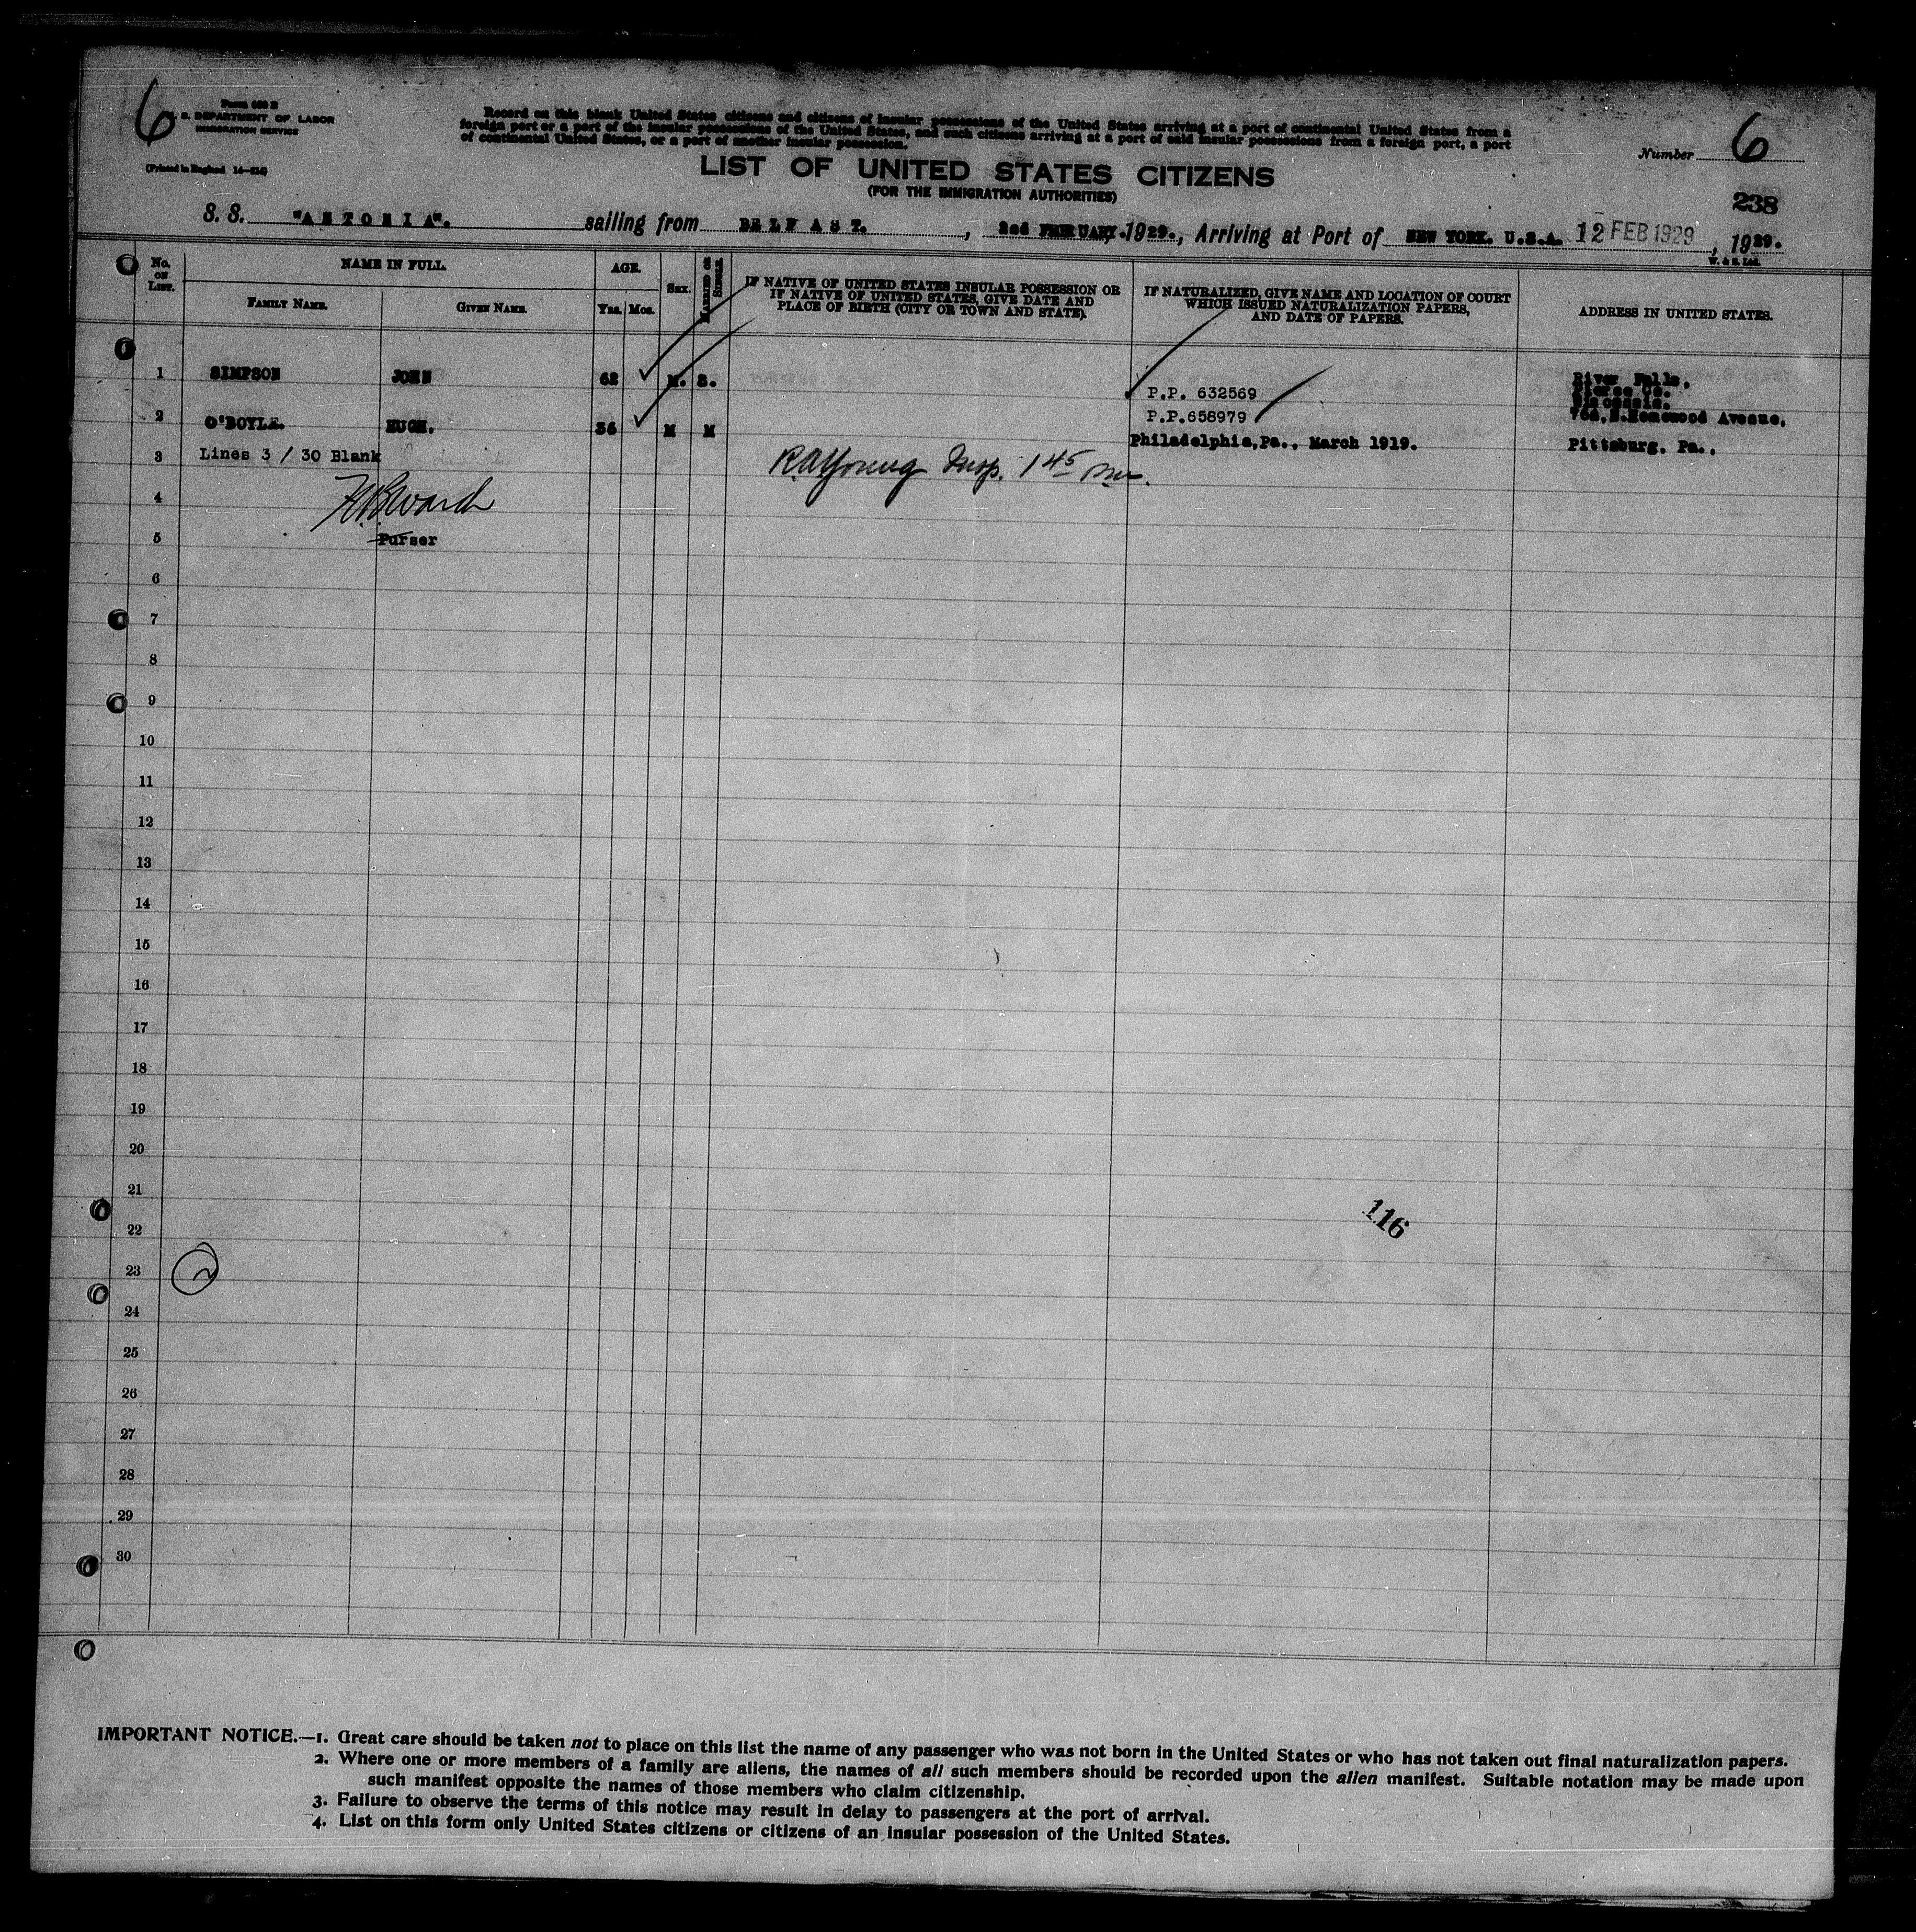 6
Form 630 B
U. S. DEPARTMENT OF LABOR
IMMIGRATION SERVICE
(Printed in England
Record on this blank United States citizens and citizens of insular possessions of the United States arriving at a port of continental United States from a
foreign port or a port of the insular possessions of the United States, and such citizens arriving at a port of said insular possessions from a foreign port, a port
of continental United States, or a port of another insular possession.
Number 6
LIST OF UNITED STATES CITIZENS
(FOR THE IMMIGRATION AUTHORITIES)
238
S. S. "ANTONIA". sailing from BELFAST. , 2nd FEBRUARY. 1929., Arriving at Port of NEW YORK. U.S.A. 12 FEB 1929, 1929.
W. & S. Ltd.
No. on List.
NAME IN FULL.
Family Name.
Given Name.
AGE.
Yrs. Mos.
Sex.
Married or Single.
IF NATIVE OF UNITED STATES INSULAR POSSESSION OR
IF NATIVE OF UNITED STATES, GIVE DATE AND
PLACE OF BIRTH (CITY OR TOWN AND STATE).
IF NATURALIZED, GIVE NAME AND LOCATION OF COURT
WHICH ISSUED NATURALIZATION PAPERS,
AND DATE OF PAPERS.
ADDRESS IN UNITED STATES.
1 SIMPSON JOHN 62 M. S. P.P. 632569 River Falls,
Pierce Co.
Wisconsin.
2 O'BOYLE. HUGH. 36 M M P.P.658979 Homewood Avenue,
Philadelphia,Pa., March 1919. Pittsburg. Pa.,
3 Lines 3 / 30 Blank
R.A. Young Insp. 1 45
4
Ward
5 Purser
6
7
8
9
10
11
12
13
14
15
16
17
18
19
20
21
116
22
23
24
25
26
27
28
29
30
IMPORTANT NOTICE.—1. Great care should be taken not to place on this list the name of any passenger who was not born in the United States or who has not taken out final naturalization papers.
2. Where one or more members of a family are aliens, the names of all such members should be recorded upon the alien manifest. Suitable notation may be made upon
such manifest opposite the names of those members who claim citizenship.
3. Failure to observe the terms of this notice may result in delay to passengers at the port of arrival.
4. List on this form only United States citizens or citizens of an insular possession of the United States.